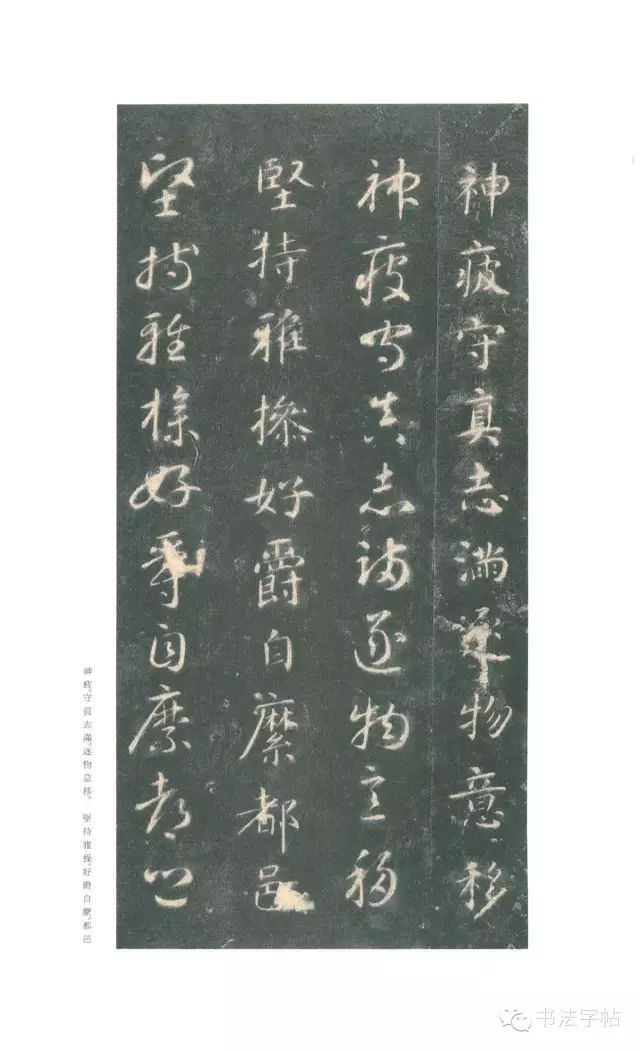 神疲守真志滿逐物意移
神疲守真志滿逐物意移
堅持雅操好爵自縻都邑
堅持雅操好爵自縻都邑
神疲。守眞志滿。逐物意移。 堅持雅操。好爵自縻。都邑
书法字帖